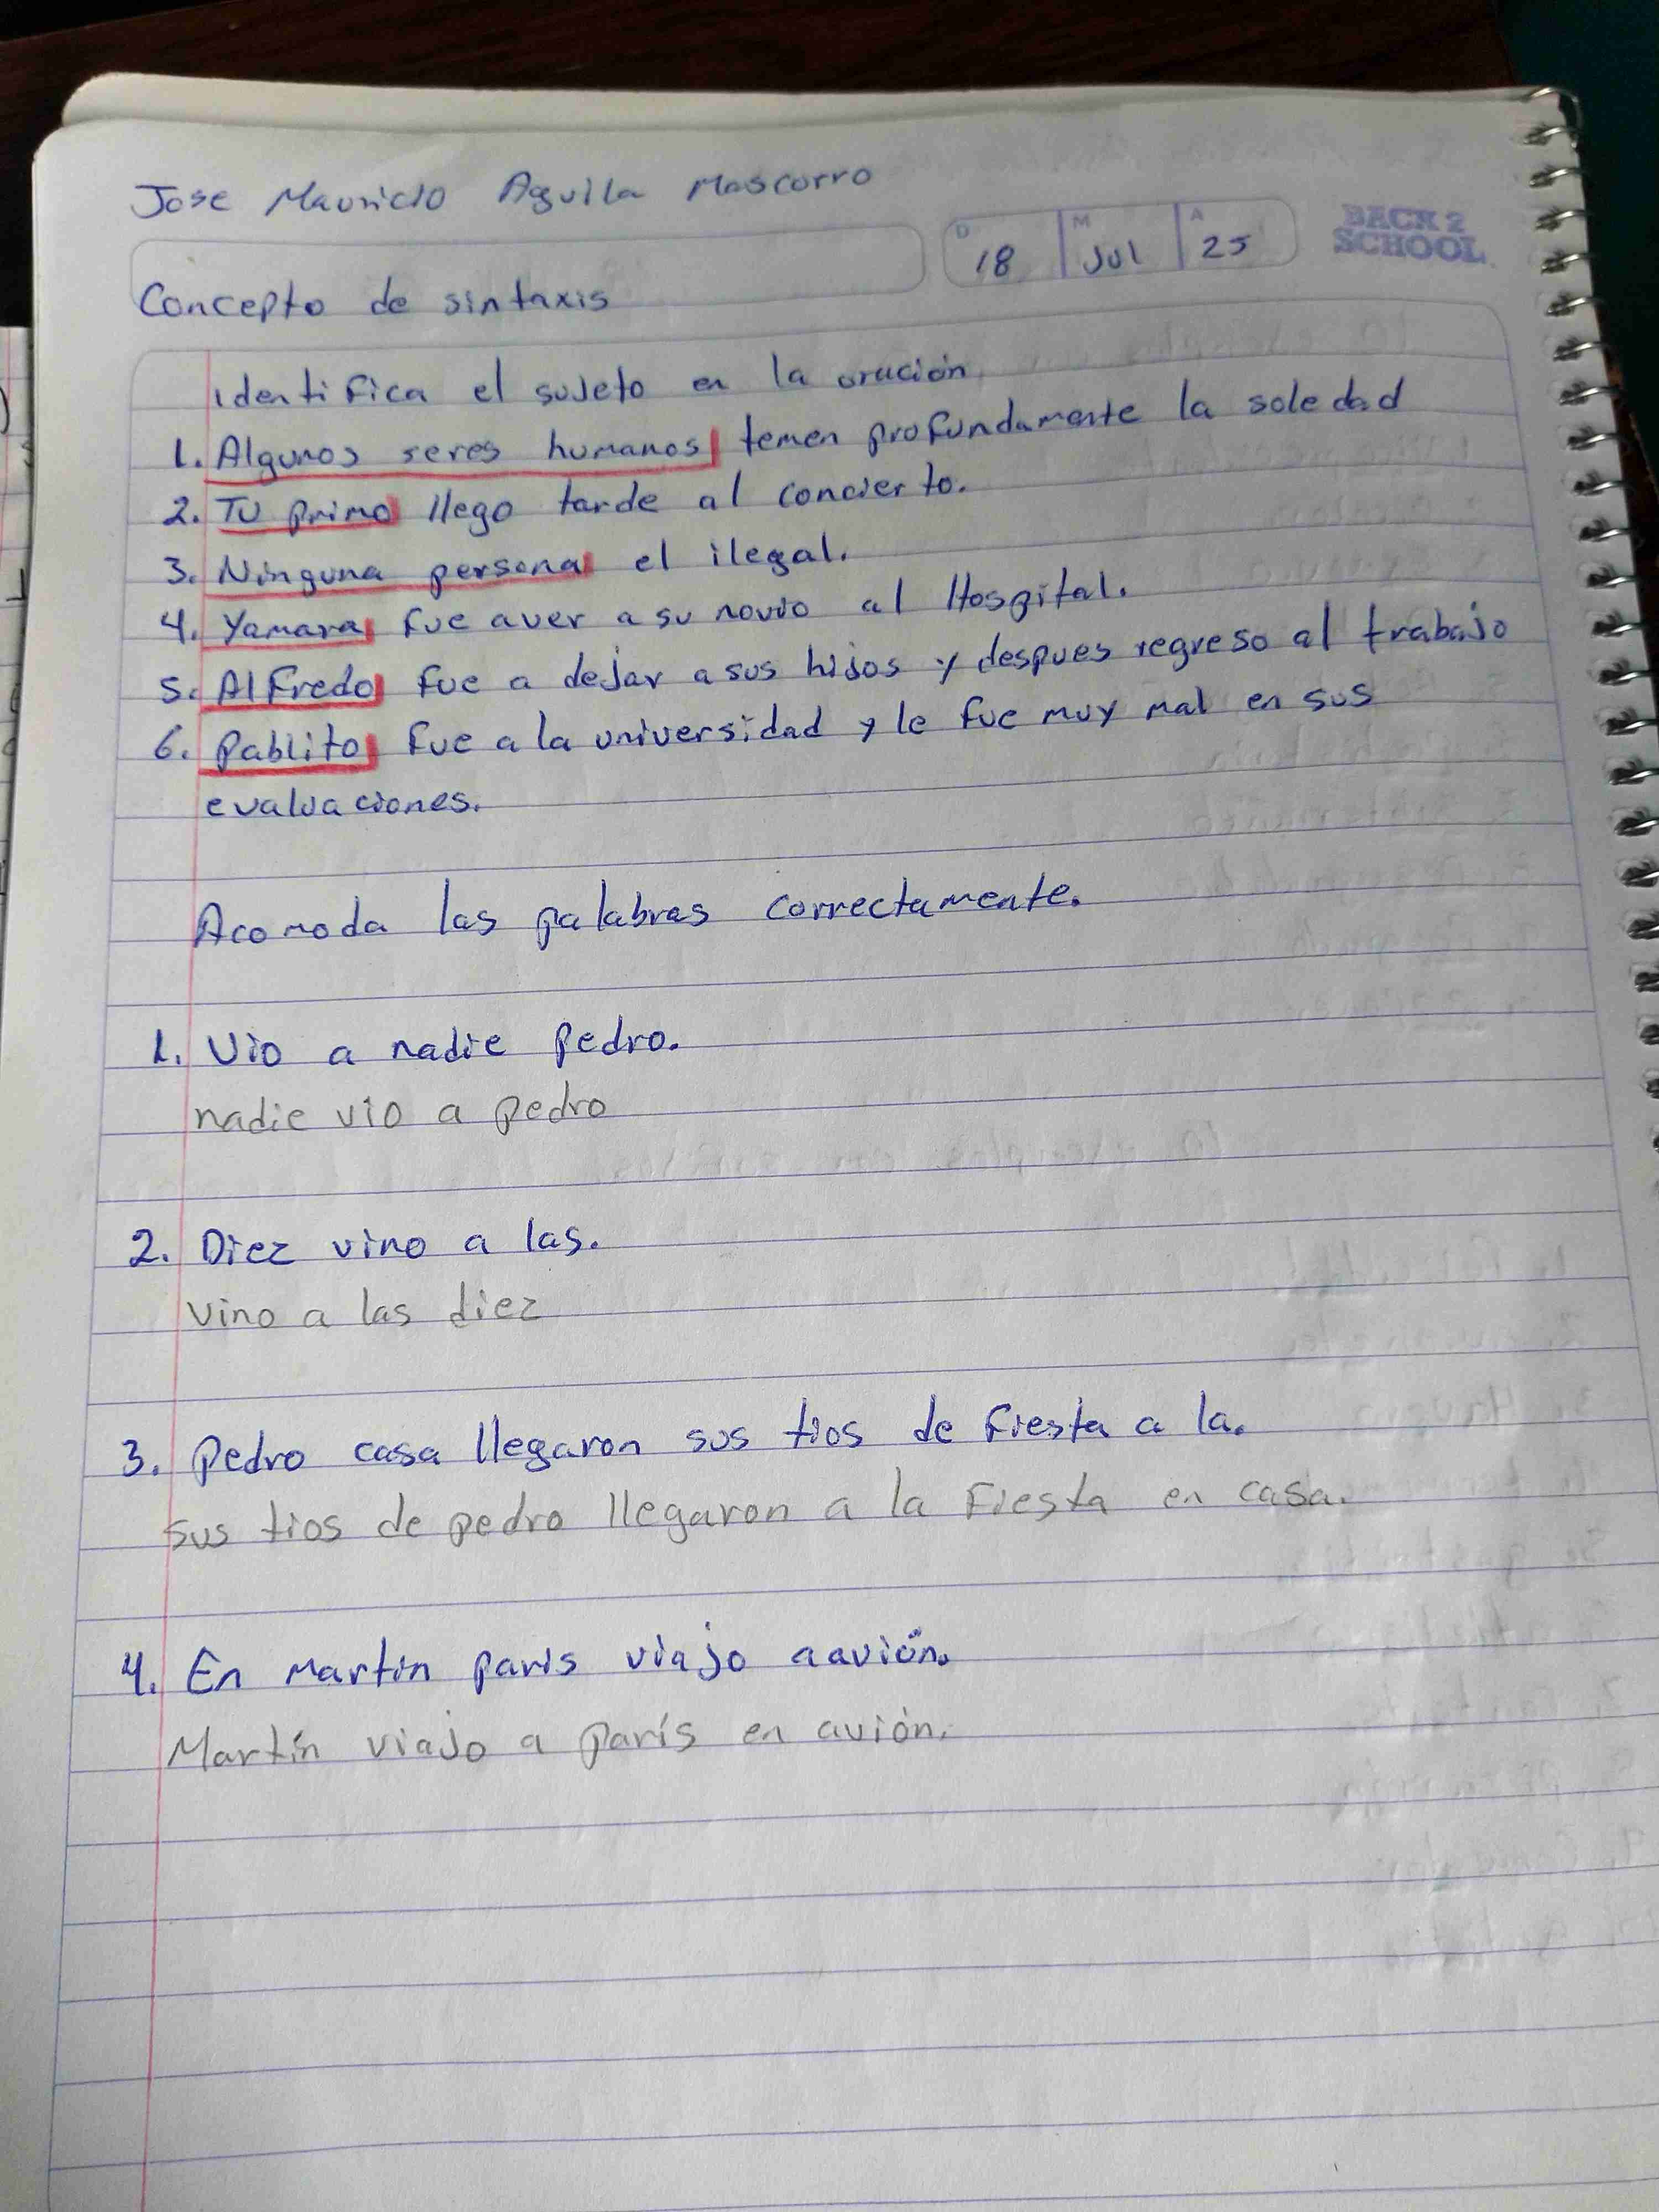 Jose Mauricio Aguila Mascorro
D 18 M Jul A 25
BACK 2
SCHOOL
Concepto de sintaxis
identifica el sujeto en la oración
1. Algunos seres humanos temen profundamente la soledad
2. Tu primo llego tarde al concierto.
3. Ninguna persona el ilegal.
4. Yamara fue aver a su novio al Hospital.
5. Alfredo fue a dejar a sus hijos y despues regreso al trabajo
6. Pablito fue a la universidad y le fue muy mal en sus
evaluaciones.
Acomoda las palabras correctamente.
1. Vio a nadie pedro.
nadie vio a pedro
2. Diez vino a las.
vino a las diez
3. Pedro casa llegaron sus tios de fiesta a la.
sus tios de pedro llegaron a la fiesta en casa.
4. En Martin paris viajo aavión.
Martín viajo a parís en avión.